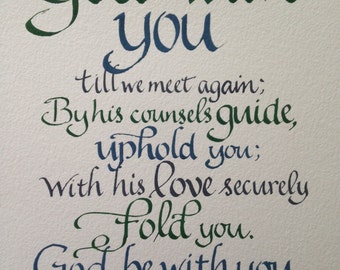 you
till we meet again;
By his counsels guide,
uphold you;
With his love securely
Fold you.
God be with you